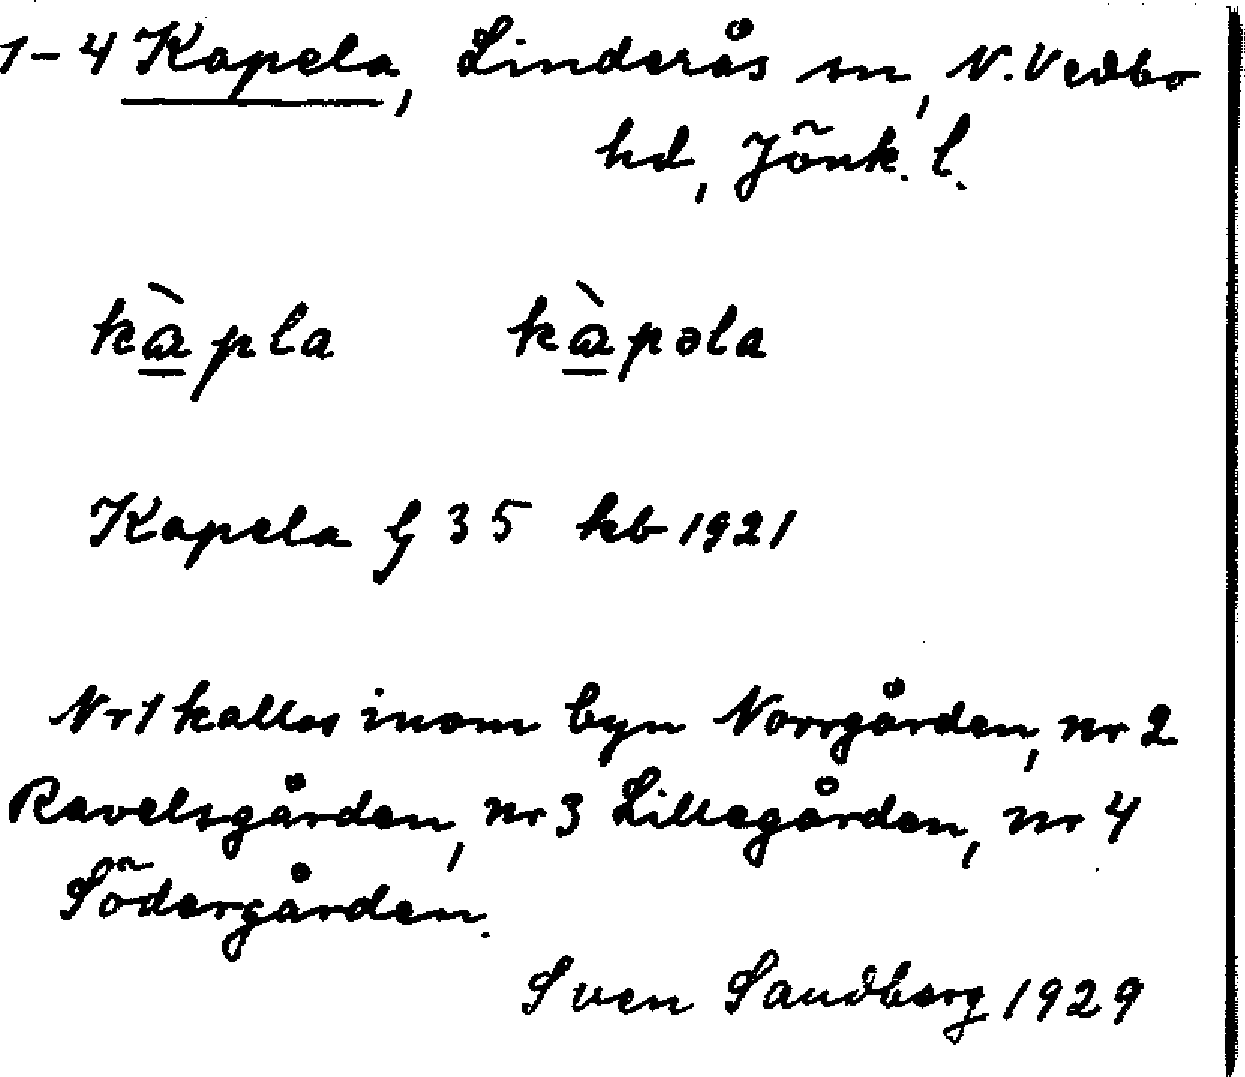 1-4 Kapela, Linderås sn, N. Vedbo
hd, Jönk. l.
kàpla kàpəla
Kapela § 35 kb 1921
Nr 1 kallas inom byn Norrgården, nr 2
Ravelsgården, nr 3 Lillegården, nr 4
Södergården.
Sven Sandberg 1929